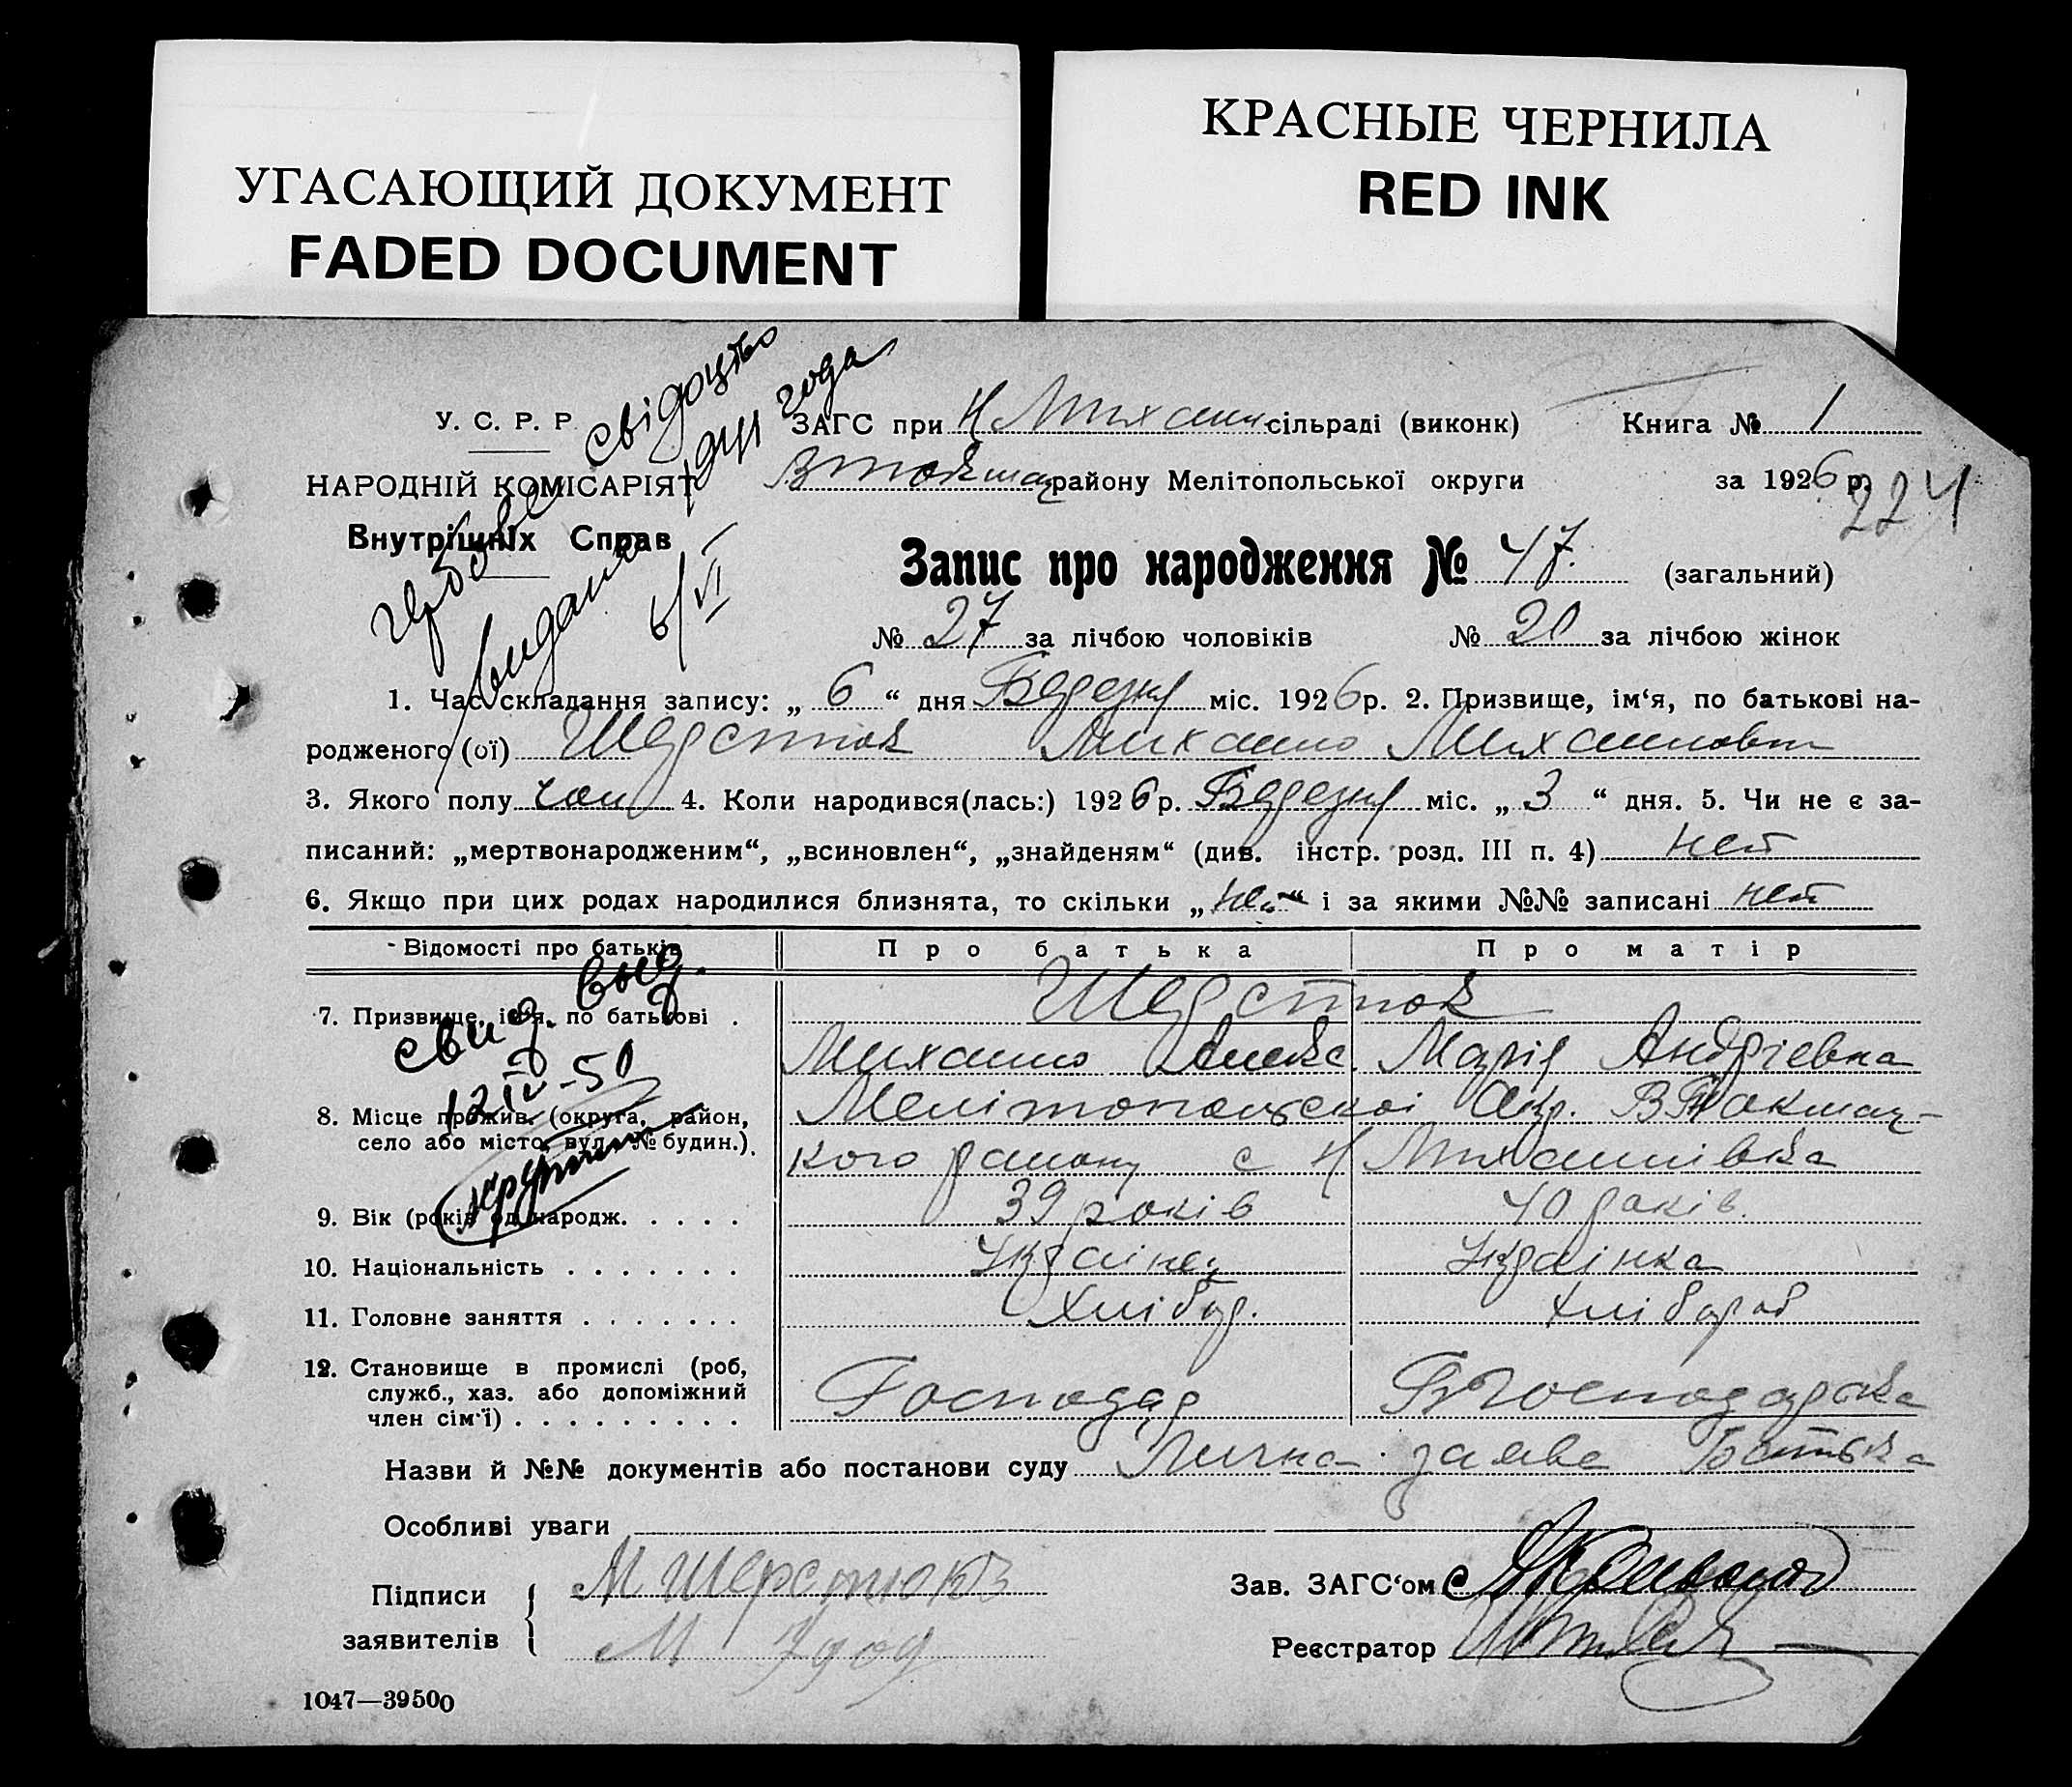 УГАСАЮЩИЙ ДОКУМЕНТ
FADED DOCUMENT
КРАСНЫЕ ЧЕРНИЛА
RED INK
У. С. Р. Р.
НАРОДНІЙ КОМІСАРІЯТ
Внутрішніх Справ
свідоцтво
видано 1941 года
6/VI
ЗАГС при Н Михайл сільраді (виконк)
Книга № 1
району Мелітопольської округи
за 1926 р.
224
Запис про народження № 47. (загальний)
№ 27 за лічбою чоловіків № 20 за лічбою жінок
1. Час складання запису: „ 6 “ дня Березня міс. 1926 р. 2. Призвище, ім‘я, по батькові на-
родженого (ої) Шерстюк Михайло Михайлович
3. Якого полу чол 4. Коли народився(лась:) 1926 р. Березня міс. „ 3 “ дня. 5. Чи не є за-
писаний: „мертвонародженим“, „всиновлен“, „знайденям“ (див. інстр. розд. III п. 4) нет
6. Якщо при цих родах народилися близнята, то скільки „ нет “ і за якими №№ записані нет
Відомості про батьків
Про батька
Про матір
свид. выд.
12 IV-50
7. Призвище, ім‘я, по батькові .
Шерстюк
Михайло Алекс. Марія Андрієвна
8. Місце прожив. (округа, район,
село або місто, вул. № будин.).
Мелітопольської Окр. ВТокмац-
кого району с Н Михайлівка
9. Вік (років од народж. . . . .
39 років
40 років.
10. Національність . . . . . . .
Українец
Українка
11. Головне заняття . . . . . . .
Хлібор.
хлібороб
12. Становище в промислі (роб,
служб., хаз. або допоміжний
член сім‘ї) . . . . . . . . .
Господар
Господарка
Назви й №№ документів або постанови суду Лична заява Батька
Особливі уваги
Підписи
заявителів
М Шерстюкъ
М Удод
Зав. ЗАГС‘ом
Реєстратор
1047—39500